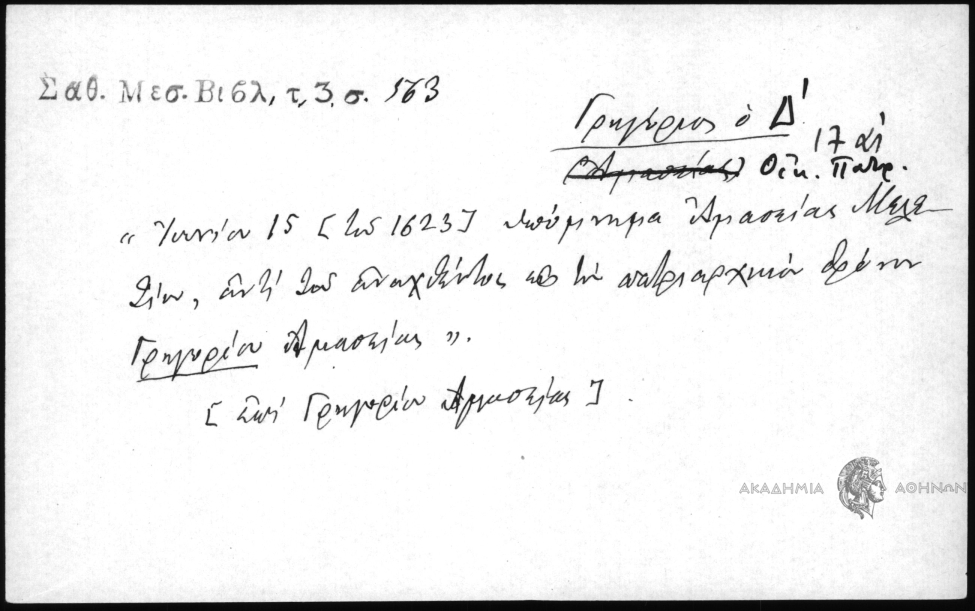 Σαθ. Μεσ. Βιβλ, τ, 3, σ. 563
Γρηγόριος ὁ Δ'
17 αἰ
(Ἀμασείας) Οἰκ. Πατρ.
« Ἰουνίου 15 [τοῦ 1623] ὑπόμνημα Ἀμασείας Μελε-
τίου, ἀντὶ τοῦ ἀναχθέντος εἰς τὸν πατριαρχικὸν θρόνον
Γρηγορίου Ἀμασείας ».
[ἐπὶ Γρηγορίου Ἀμασείας] .
ΑΚΑΔΗΜΙΑ ΑΘΗΝΩΝ